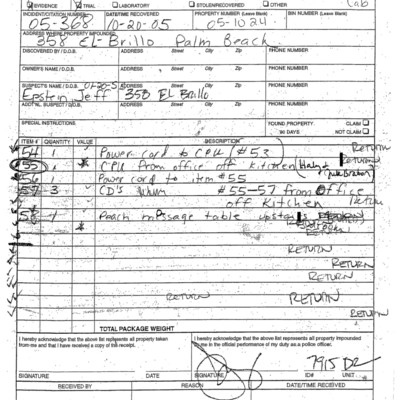 EVIDENCE TRIAL LABORATORY STOLEN/RECOVERED OTHER Lab
INCIDENT/CITATION NUMBER DATE/TIME RECEIVED PROPERTY NUMBER (Leave Blank) BIN NUMBER (Leave Blank)
05-368 10-20-05 05-1024
ADDRESS WHERE PROPERTY IMPOUNDED
358 EL-Brillo Palm Beach
DISCOVERED BY / D.O.B. ADDRESS Street City Zip PHONE NUMBER
OWNER'S NAME / D.O.B. ADDRESS Street City Zip PHONE NUMBER
SUSPECT'S NAME / D.O.B. ADDRESS Street City Zip PHONE NUMBER
Epstein Jeff 358 EL Brillo
ADDT'NL SUSPECT / D.O.B. ADDRESS Street City Zip PHONE NUMBER
SPECIAL INSTRUCTIONS FOUND PROPERTY CLAIM
90 DAYS NOT CLAIM
ITEM # QUANTITY VALUE DESCRIPTION
54 1 Power cord to CPU #53 RETURN
55 CPU from office off kitchen RETURN
56 Power cord to item #55
57 3 CD's #55-57 from office
off Kitchen Return
58 message table
RETURN
RETURN
RETURN
RETURN
RETURN RETURN
RETURN
TOTAL PACKAGE WEIGHT
I hereby acknowledge that the above list represents all property taken I hereby acknowledge that the above list represents all property impounded
from me and that I have received a copy of this receipt. to me in the official performance of my duty as a police officer.
7915 DZ
SIGNATURE DATE SIGNATURE ID# UNIT
RECEIVED BY REASON DATE/TIME RECEIVED